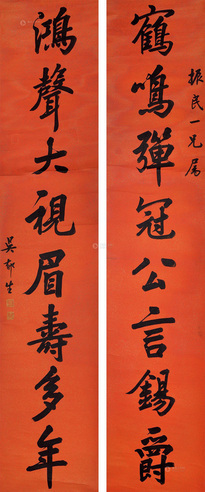 振民一兄属
鶴鳴彈冠公言錫爵
鴻聲大視眉壽多年
吴郁生